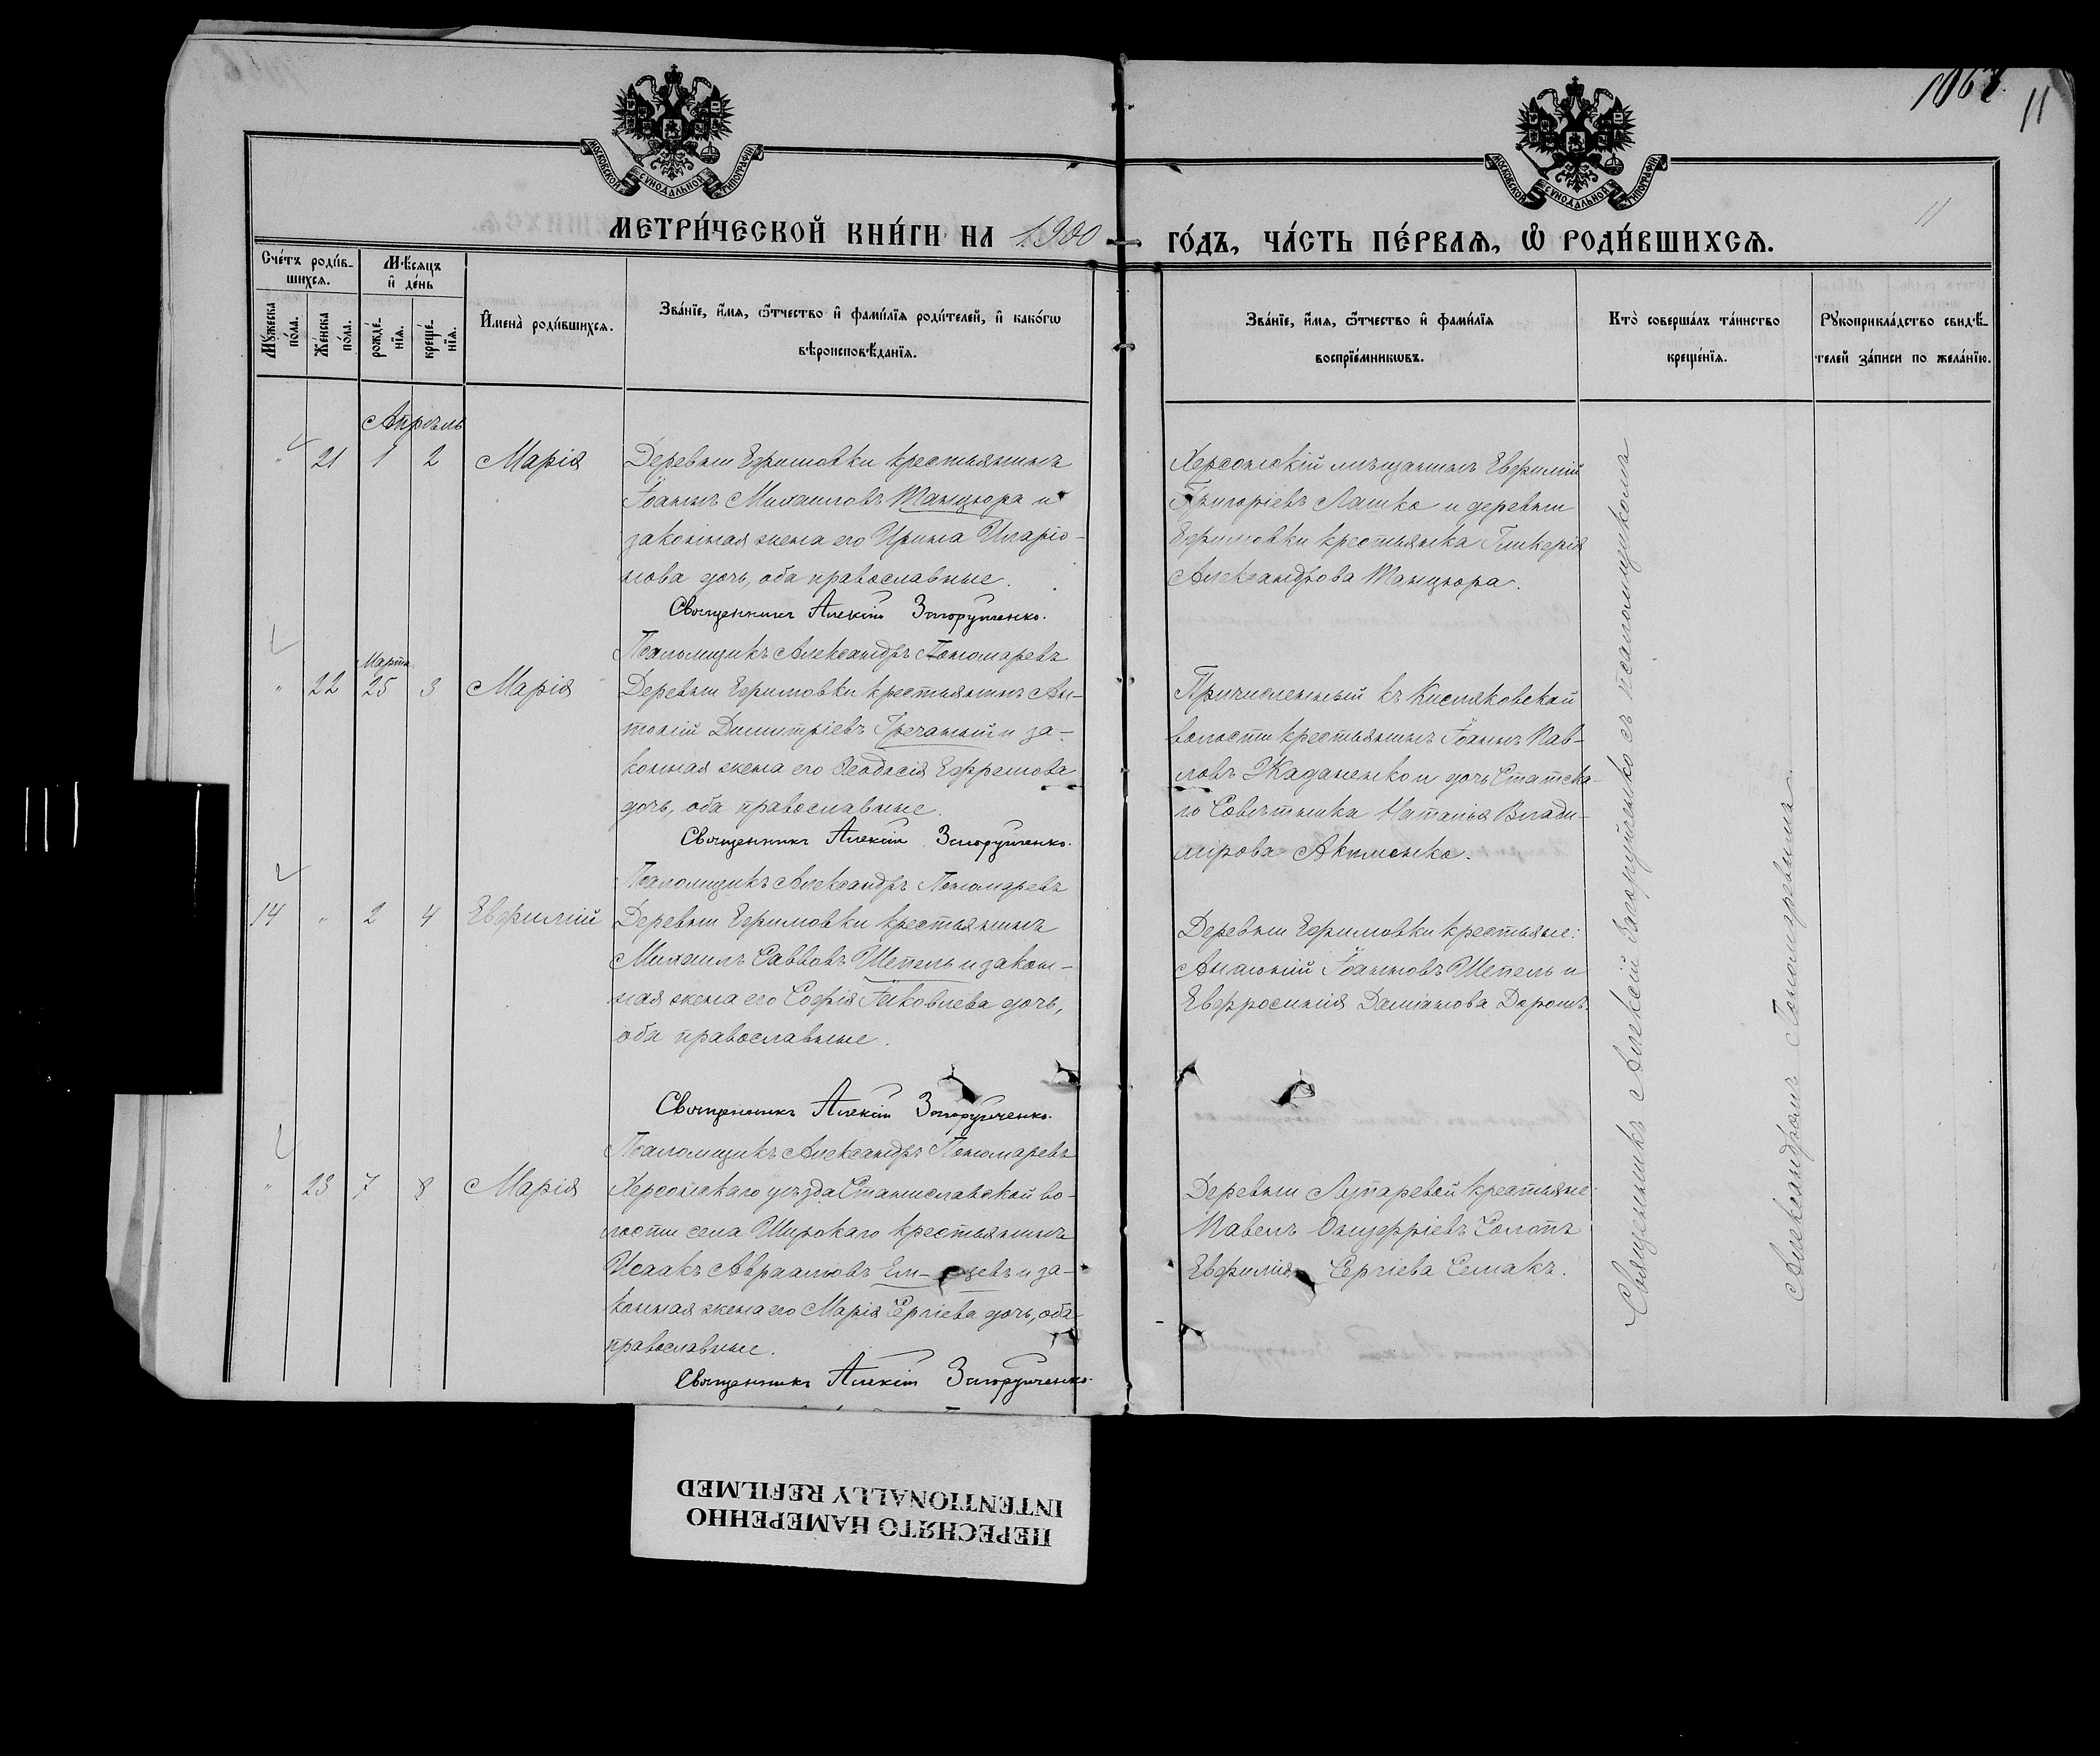 1067
11
МОСКОВСКОЙ СУНОДАЛЬНОЙ ТИПОГРАФІИ
МОСКОВСКОЙ СУНОДАЛЬНОЙ ТИПОГРАФІИ
МЕТРИ́ЧЕСКОЙ КНИ́ГИ НА 1900
ГО́ДЪ, ЧА́СТЬ ПЕ́РВАЯ, Ѡ РОДИ́ВШИХСЯ.
11
Сче́тъ роди́в-
шихся.
Мѣ́сяцъ
и де́нь
Мꙋ́жеска по́ла.
Же́нска по́ла.
рожде́-
нїя.
креще́-
нїя.
И҆мена̀ роди́вшихся.
Зва́нїе, и҆́мя, ѻ҆́тчество и҆ фами́лїя роди́телей, и҆ како́гѡ
вѣроисповѣ́данїя.
Зва́нїе, и҆́мя, ѻ҆́тчество и҆ фами́лїя
воспрїе́мникѡвъ.
Кто̀ соверша́лъ та́инство
креще́нїя.
Рꙋкоприкла́дство свидѣ́-
телей за́писи по жела́нїю.
Апрѣль
" 21 1 2 Марія
Деревни Ефимовки крестьянинъ
Іоаннъ Михаиловъ Танцюра и
законная жена его Ирина Иларіо-
нова дочь, оба православные.
Священникъ Алексій Загоруйченко.
Псаломщикъ Александръ Пономаревъ
Херсонскій мѣщанинъ Евфимій
Григоріевъ Лашко и деревни
Ефимовки крестьянка Гликерія
Александрова Танцюра.
Марта
" 22 25 3 Марія
Деревни Ефимовки крестьянинъ Ан-
тоній Димитріевъ Гречаный и за-
конная жена его Ѳеодосія Ефремова
дочь, оба православные.
Священникъ Алексій Загоруйченко.
Псаломщикъ Александръ Пономаревъ
Причисленный къ Кисляковской
волости крестьянинъ Іоаннъ Пав-
ловъ Жаданенко и дочь Статска-
го Совѣтника Наталія Влади-
мірова Акименко.
14 " 2 4 Евфимій
Деревни Ефимовки крестьянинъ
Михаилъ Саввовъ Шепель и закон-
ная жена его Софія Іаковлева дочь,
оба православные.
Священникъ Алексій Загоруйченко.
Псаломщикъ Александръ Пономаревъ
Деревни Ефимовки крестьяне:
Антоній Іоанновъ Шепель и
Евфросинія Даміанова Дорошъ.
" 23 7 8 Марія
Херсонскаго уѣзда Станиславской во-
лости села Широкаго крестьянинъ
Исаакъ Авраамовъ и за-
конная жена его Марія Сергіева дочь, оба
православные.
Священникъ Алексій Загоруйченко.
Деревни Лупаревой крестьяне:
Павелъ Онуфріевъ
Евфимія Сергіева Семакъ.
Священникъ Алексій Загоруйченко съ псаломщикомъ
Александромъ Пономаревымъ
ПЕРЕСНЯТО НАМЕРЕННО
INTENTIONALLY REFILMED